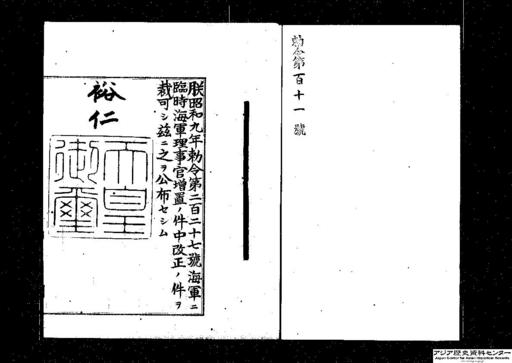 勅令第百十一號
朕昭和九年勅令第二百二十七號海軍ニ
臨時海軍理事官增置ノ件中改正ノ件ヲ
裁可シ茲ニ之ヲ公布セシム
裕仁
天皇
御璽
アジア歴史資料センター
Japan Center for Asian Historical Records